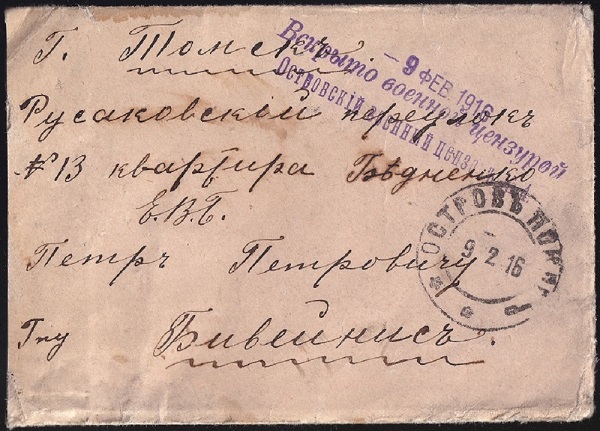 Г. Томскъ.
Русаковскій переулокъ
№ 13 квартира Бѣдненко
Е.В.Б.
Петръ Петровичу
Гну Бивейнисъ.
- 9 ФЕВ 1916
Вскрыто военной цензурой
Островскій военный
ОСТРОВЪ
9 2 16